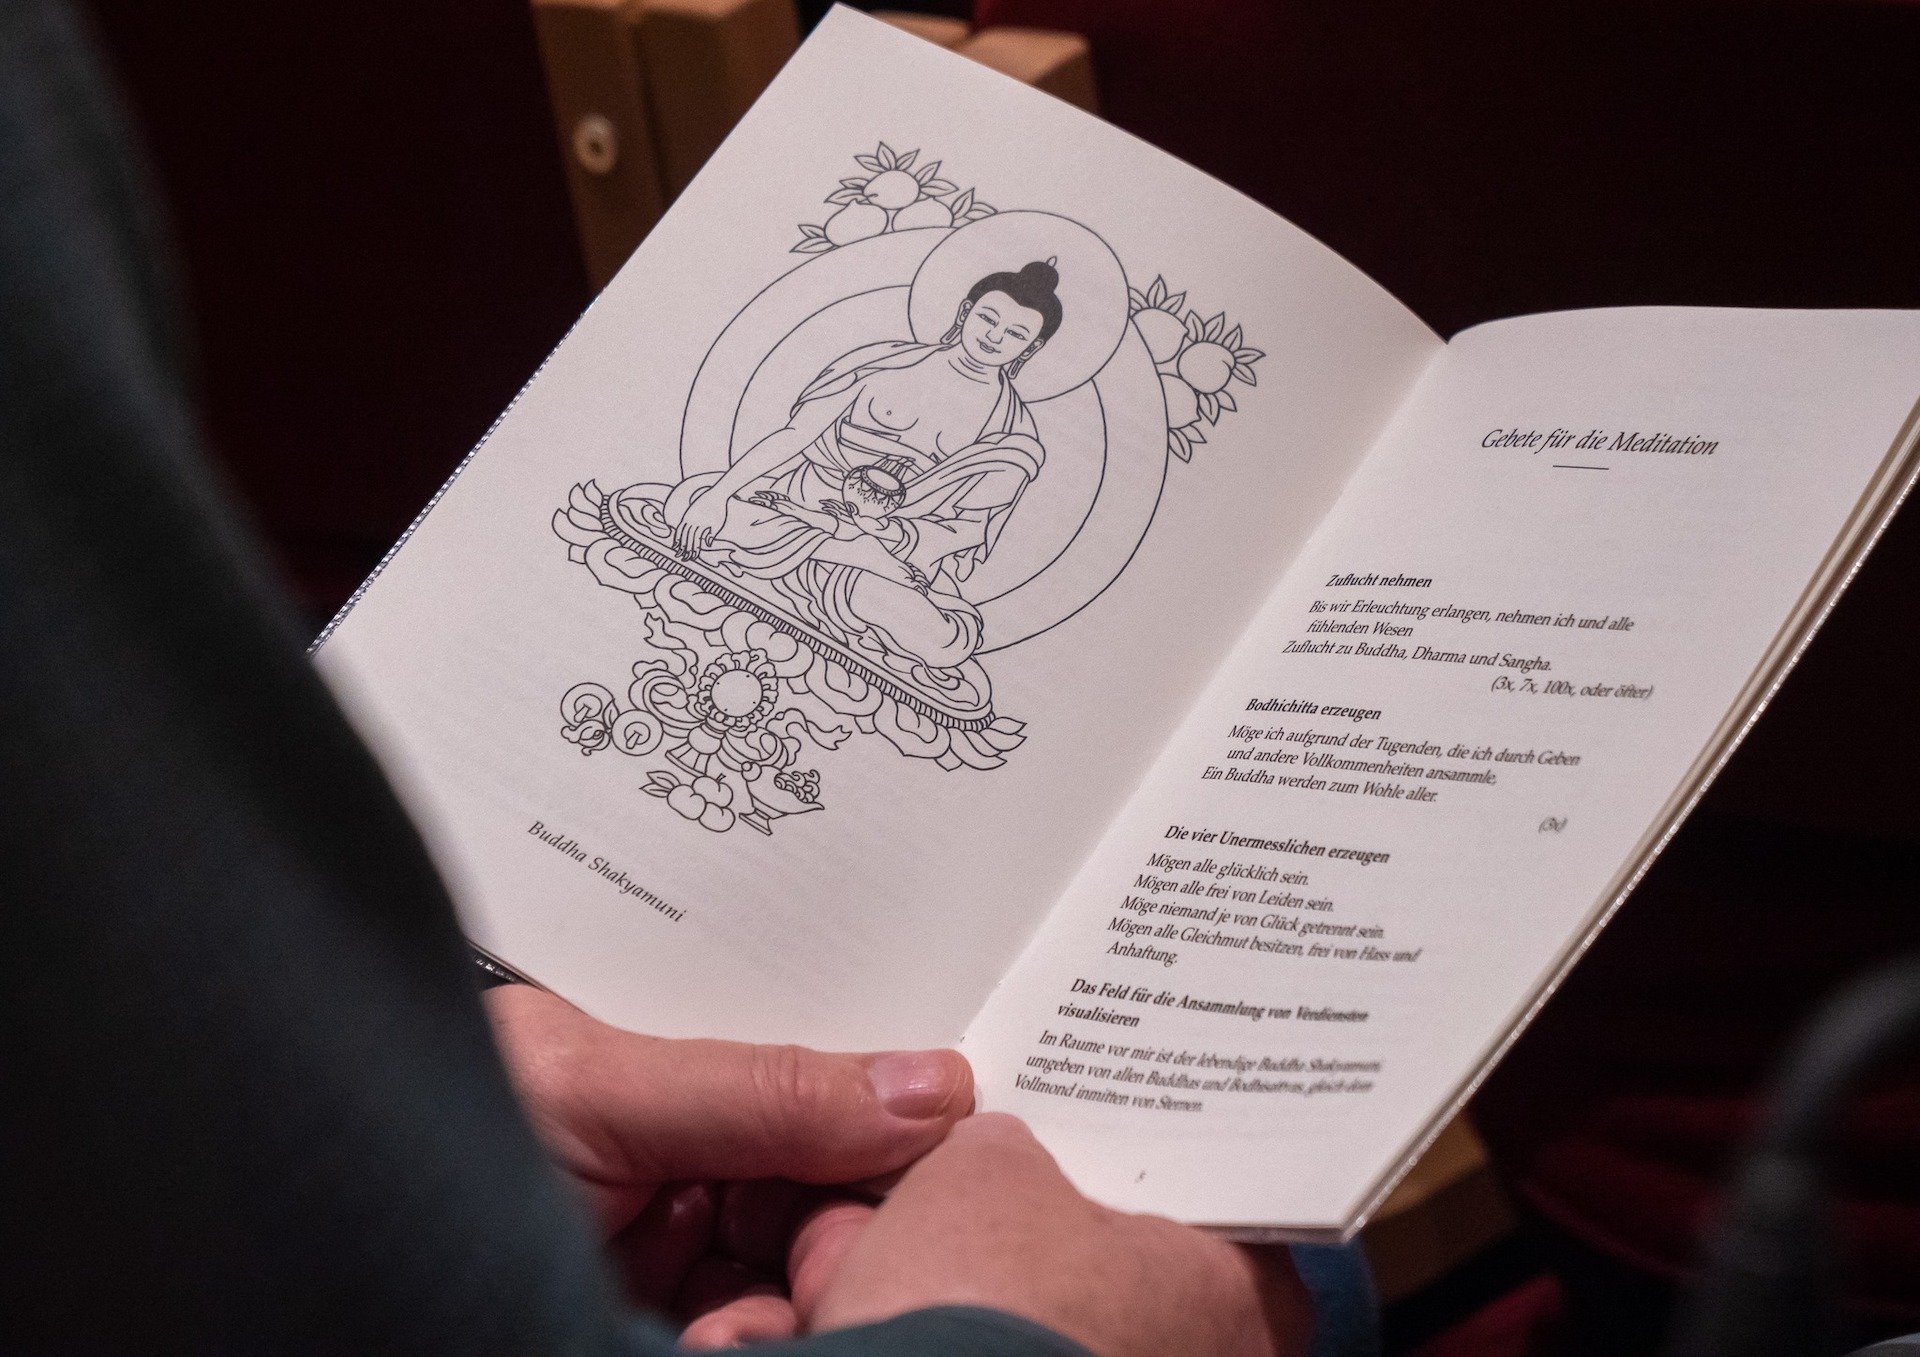 Buddha Shakyamuni
Gebete für die Meditation
Zuflucht nehmen
Bis wir Erleuchtung erlangen, nehmen ich und alle
fühlenden Wesen
Zuflucht zu Buddha, Dharma und Sangha.
(3x, 7x, 100x, oder öfter)
Bodhichitta erzeugen
Möge ich aufgrund der Tugenden, die ich durch Geben
und andere Vollkommenheiten ansammle,
Ein Buddha werden zum Wohle aller.
(3x)
Die vier Unermesslichen erzeugen
Mögen alle glücklich sein.
Mögen alle frei von Leiden sein.
Möge niemand je von Glück getrennt sein.
Mögen alle Gleichmut besitzen, frei von Hass und
Anhaftung.
Das Feld für die Ansammlung von Verdiensten
visualisieren
Im Raume vor mir ist der lebendige Buddha Shakyamuni
umgeben von allen Buddhas und Bodhisattvas, gleich dem
Vollmond inmitten von Sternen.